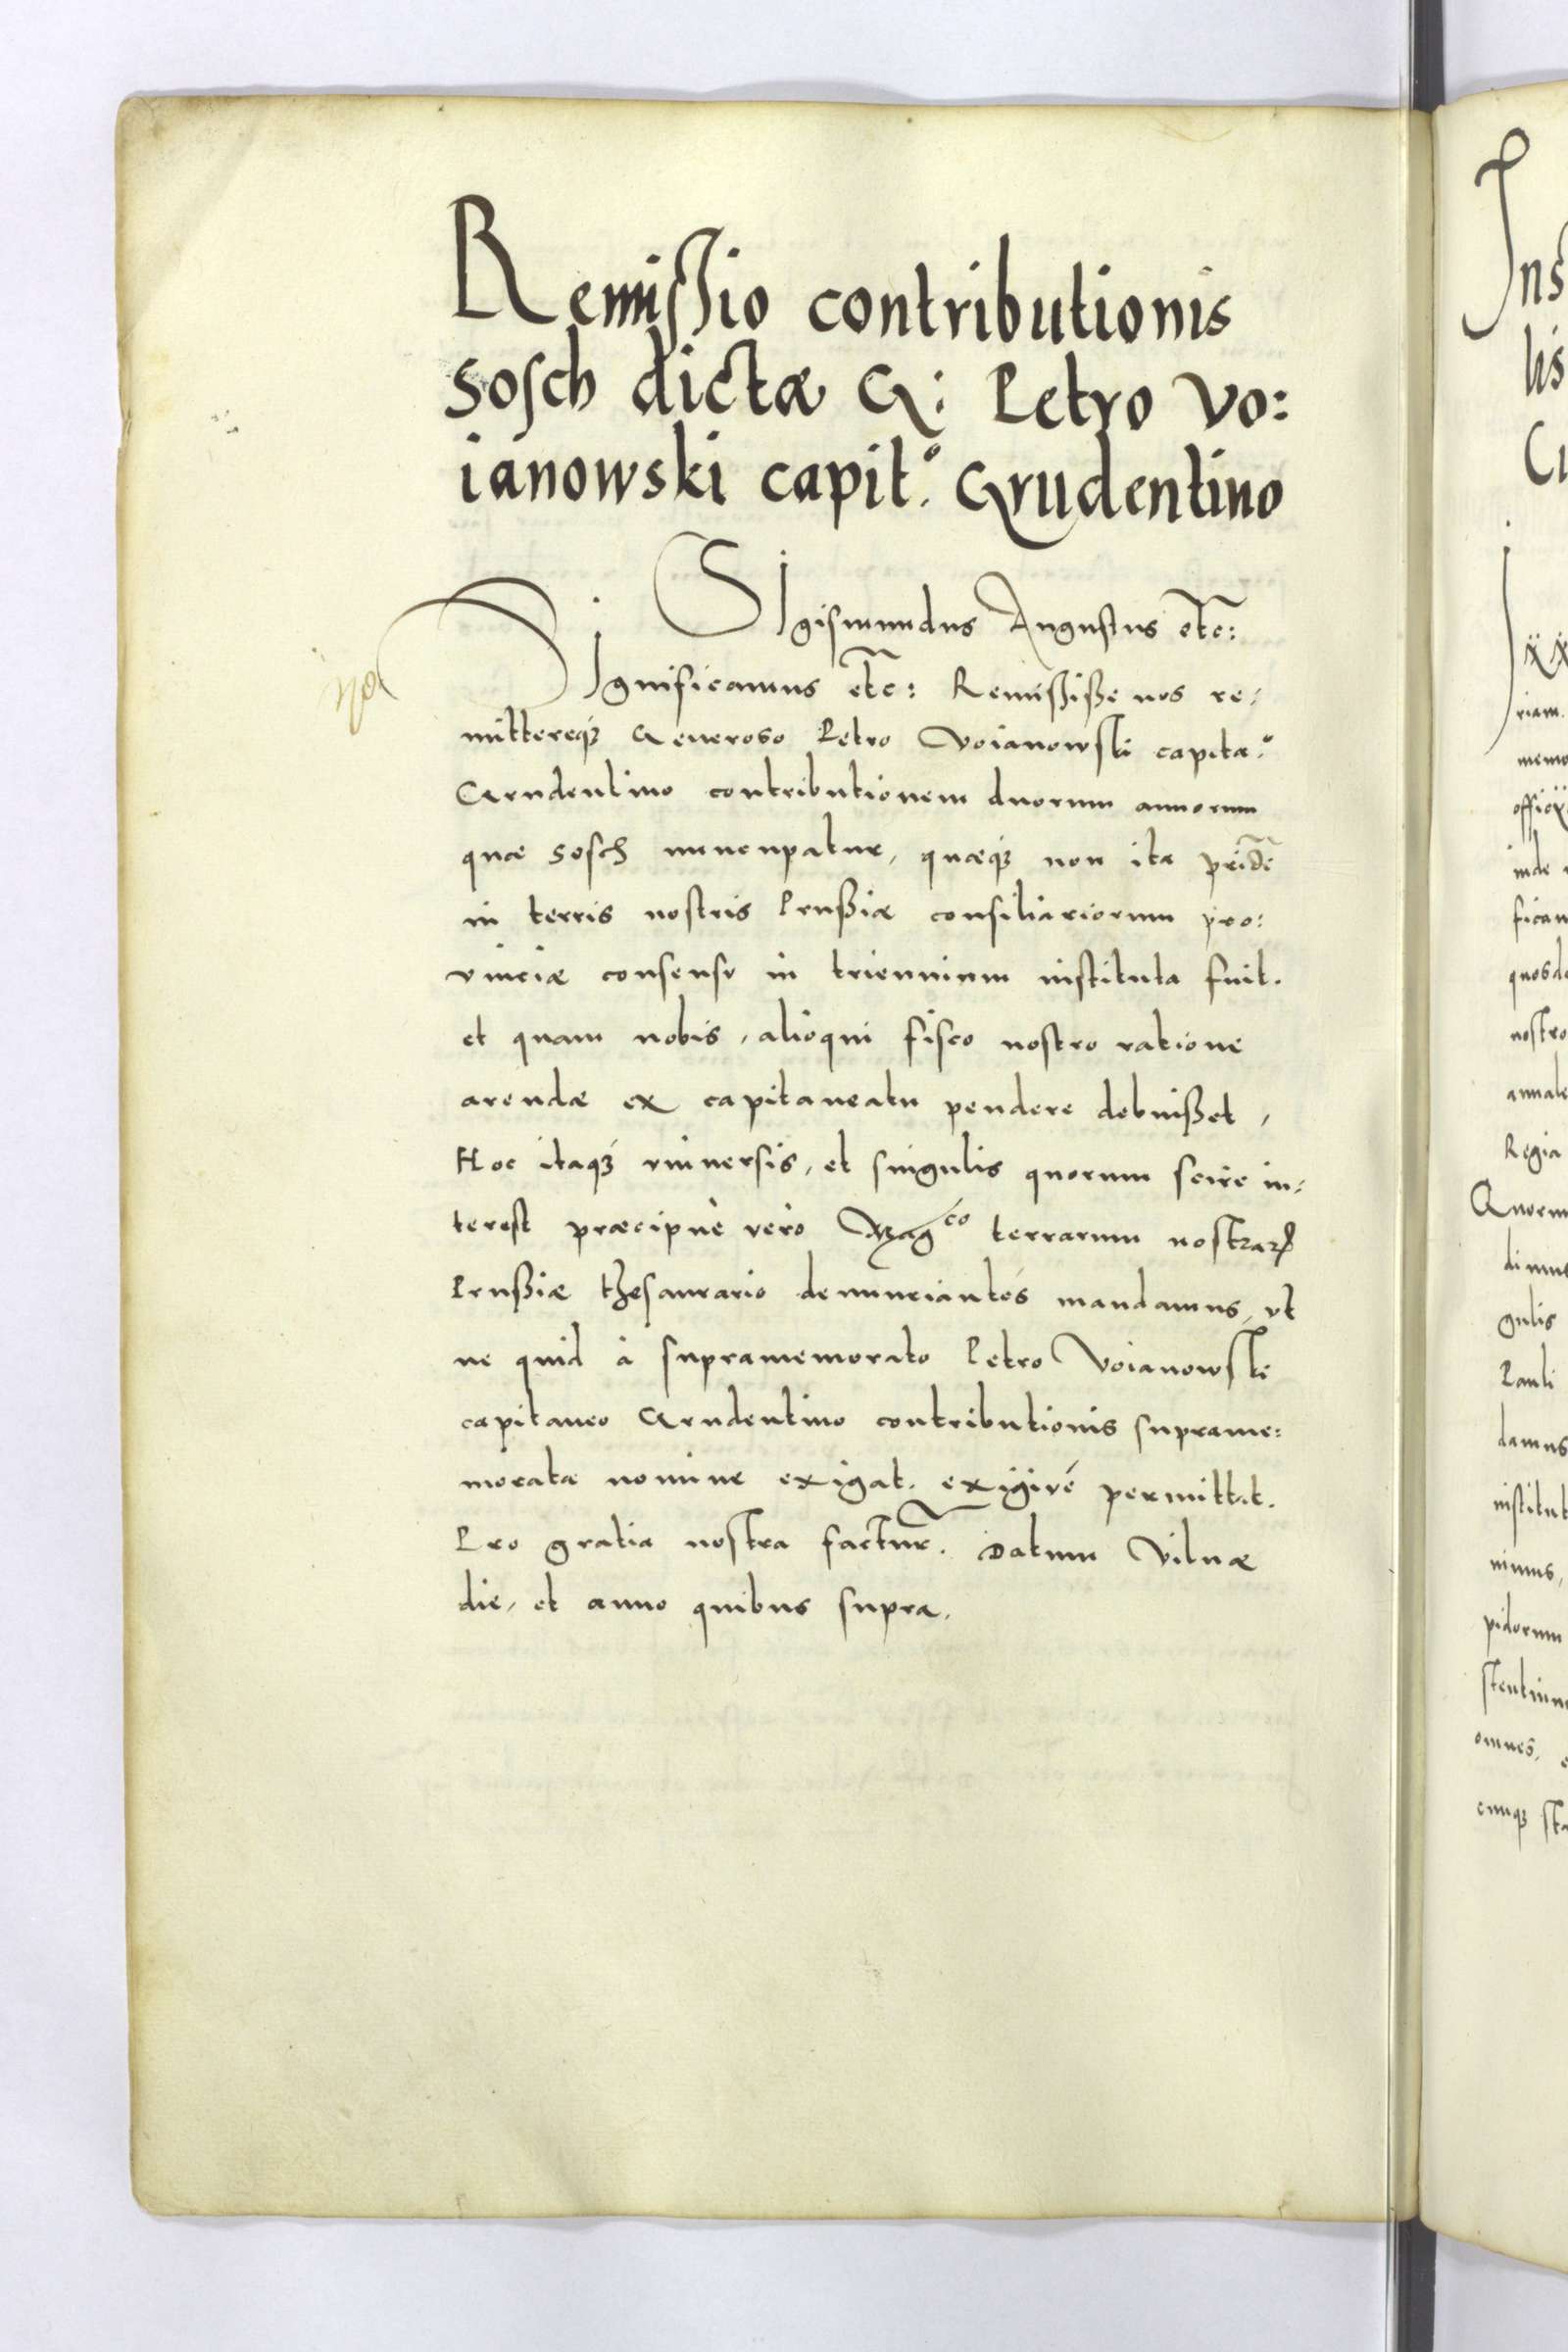 Remissio contributionis
Sosch dictæ G: Petro Vo:
ianowski capit.° Grudentino
SIgismundus Augustus etc:
SIgnificamus etc: Remississe nos re-
mittereq₃ Generoso Petro Voianowski capita.°
Grudentino contributionem duorum annorum
quæ Sosch nuncupatur, quæq₃ non ita pridē
in terris nostris Prussiæ consiliariorum pro:
vinciæ consensu in triennium instituta fuit.
et quam nobis, alioqui fisco nostro ratione
arendæ ex capitaneatu pendere debuisset,
Hoc itaq₃ vniuersis, et singulis quorum scire in-
terest præcipuè verò Mag^co terrarum nostrarꝝ
Prussiæ thesaurario denunciantes mandamus, vt
ne quid à supramemorato Petro Voianowski
capitaneo Grudentino contributionis suprame:
moratæ nomine exigat. exigiué permittat.
Pro gratia nostra factur̃. Datum Vilnæ
die, et anno quibus supra.
Ins
lis
riam.
memo
inde
fican
quosd
nostro
annale
Regia
Quorum
dimus
gulis
Pauli
damus
institut
nimus,
pidorum
omnes,
cumq₃ sta